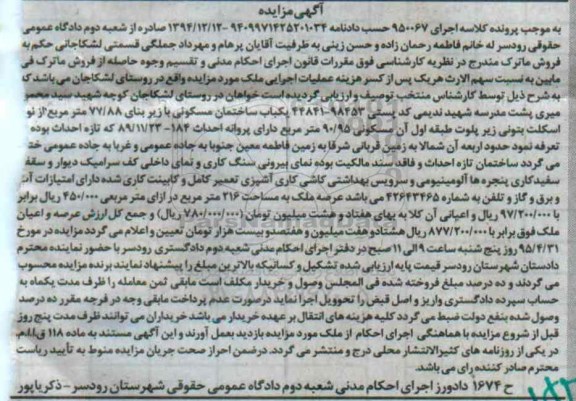 آگهی مزایده
به موجب پرونده کلاسه اجرای ۹۵۰۰۶۷ حسب دادنامه ۹۴۰۹۹۷۱۴۲۵۲۰۱۰۳۴ -۱۳۹۴/۱۲/۱۲ صادره از شعبه دوم دادگاه عمومی
حقوقی رودسر له خانم فاطمه رحمان زاده و حسن زینی به طرفیت آقایان پرهام و مهرداد جملگی قسمتی لشکاجانی حکم به
فروش ماترک مندرج در نظریه کارشناسی فوق مقررات قانون اجرای احکام مدنی و تقسیم وجوه حاصله از فروش ماترک فی
مابین به نسبت سهم الارث هریک پس از کسر هزینه عملیات اجرایی ملک مورد مزایده واقع در روستای لشکاجان می باشد که
به شرح ذیل توسط کارشناس منتخب توصیف و ارزیابی گردیده است خواهان در روستای لشکاجان کوچه شهید سید محمد
میری پشت مدرسه شهید ندیمی کد پستی ۹۸۴۵۳-۴۴۸۴۱ یکباب ساختمان مسکونی با زیر بنای ۷۷/۸۸ متر مربع از نوع
اسکلت بتونی زیر پلوت طبقه اول آن مسکونی ۹۰/۹۵ متر مربع دارای پروانه احداث ۱۸۴- ۸۹/۱۱/۲۳ که تازه احداث بوده
تعرفه نمود حدود اربعه آن شمالا به زمین قربانی شرقا به زمین فاطمه معین جنوبا به جاده عمومی و غربا به جاده عمومی ختم
می گردد ساختمان تازه احداث و فاقد سند مالکیت بوده نمای بیرونی سنگ کاری و نمای داخلی کف سرامیک دیوار و سقف
سفیدکاری پنجره ها آلومینیومی و سرویس بهداشتی کاشی کاری آشپزی تعمیر کامل و کابینت کاری شده دارای امتیازات آب
و برق و گاز و تلفن به شماره ۴۲۶۴۳۴۶۵ می باشد عرصه ملک به مساحت ۲۱۶ متر مربع در ازای متر مربعی ۴۵۰/۰۰۰ ریال برابر
با ۹۷/۲۰۰/۰۰۰ ریال و اعیانی آن کلا به بهای هفتاد و هشت میلیون تومان (۷۸۰/۰۰۰/۰۰۰ ریال) و جمع کل ارزش عرصه و اعیان
ملک فوق برابر با ۸۷۷/۲۰۰/۰۰۰ ریال هشتاد و هفت میلیون و هفتصد و بیست هزار تومان تعیین و اعلام می گردد مزایده در مورخ
۹۵/۴/۳۱ روز پنج شنبه ساعت ۹ الی ۱۱ صبح در دفتر اجرای احکام مدنی شعبه دوم دادگستری رودسر با حضور نماینده محترم
دادستان شهرستان رودسر قیمت پایه ارزیابی شده تشکیل و کسانیکه بالاترین مبلغ را پیشنهاد نمایند برنده مزایده محسوب
می گردند و ده درصد مبلغ فروخته شده فی المجلس وصول و خریدار مکلف است مابقی ثمن معامله را ظرف مدت یکماه به
حساب سپرده دادگستری واریز و اصل فیض را تحویل اجرا نماید درصورت عدم پرداخت مابقی وجه در فرجه مقرر ده درصد
وصول شده بنفع دولت ضبط می گردد کلیه هزینه های انتقال بر عهده خریدار می باشد خریداران می توانند ظرف مدت پنج روز
قبل از شروع مزایده با هماهنگی اجرای احکام از ملک مورد مزایده بازدید بعمل آورند و این آگهی مستند به ماده ۱۱۸ ق.ا.ا.م
در یکی از روزنامه های کثیرالانتشار محلی درج و منتشر می گردد. در ضمن احراز صحت جریان مزایده منوط به تأیید ریاست
محترم صادر کننده رای می باشد.
ح ۱۶۷۴ دادورز اجرای احکام مدنی شعبه دوم دادگاه عمومی حقوقی شهرستان رودسر - ذکریاپور